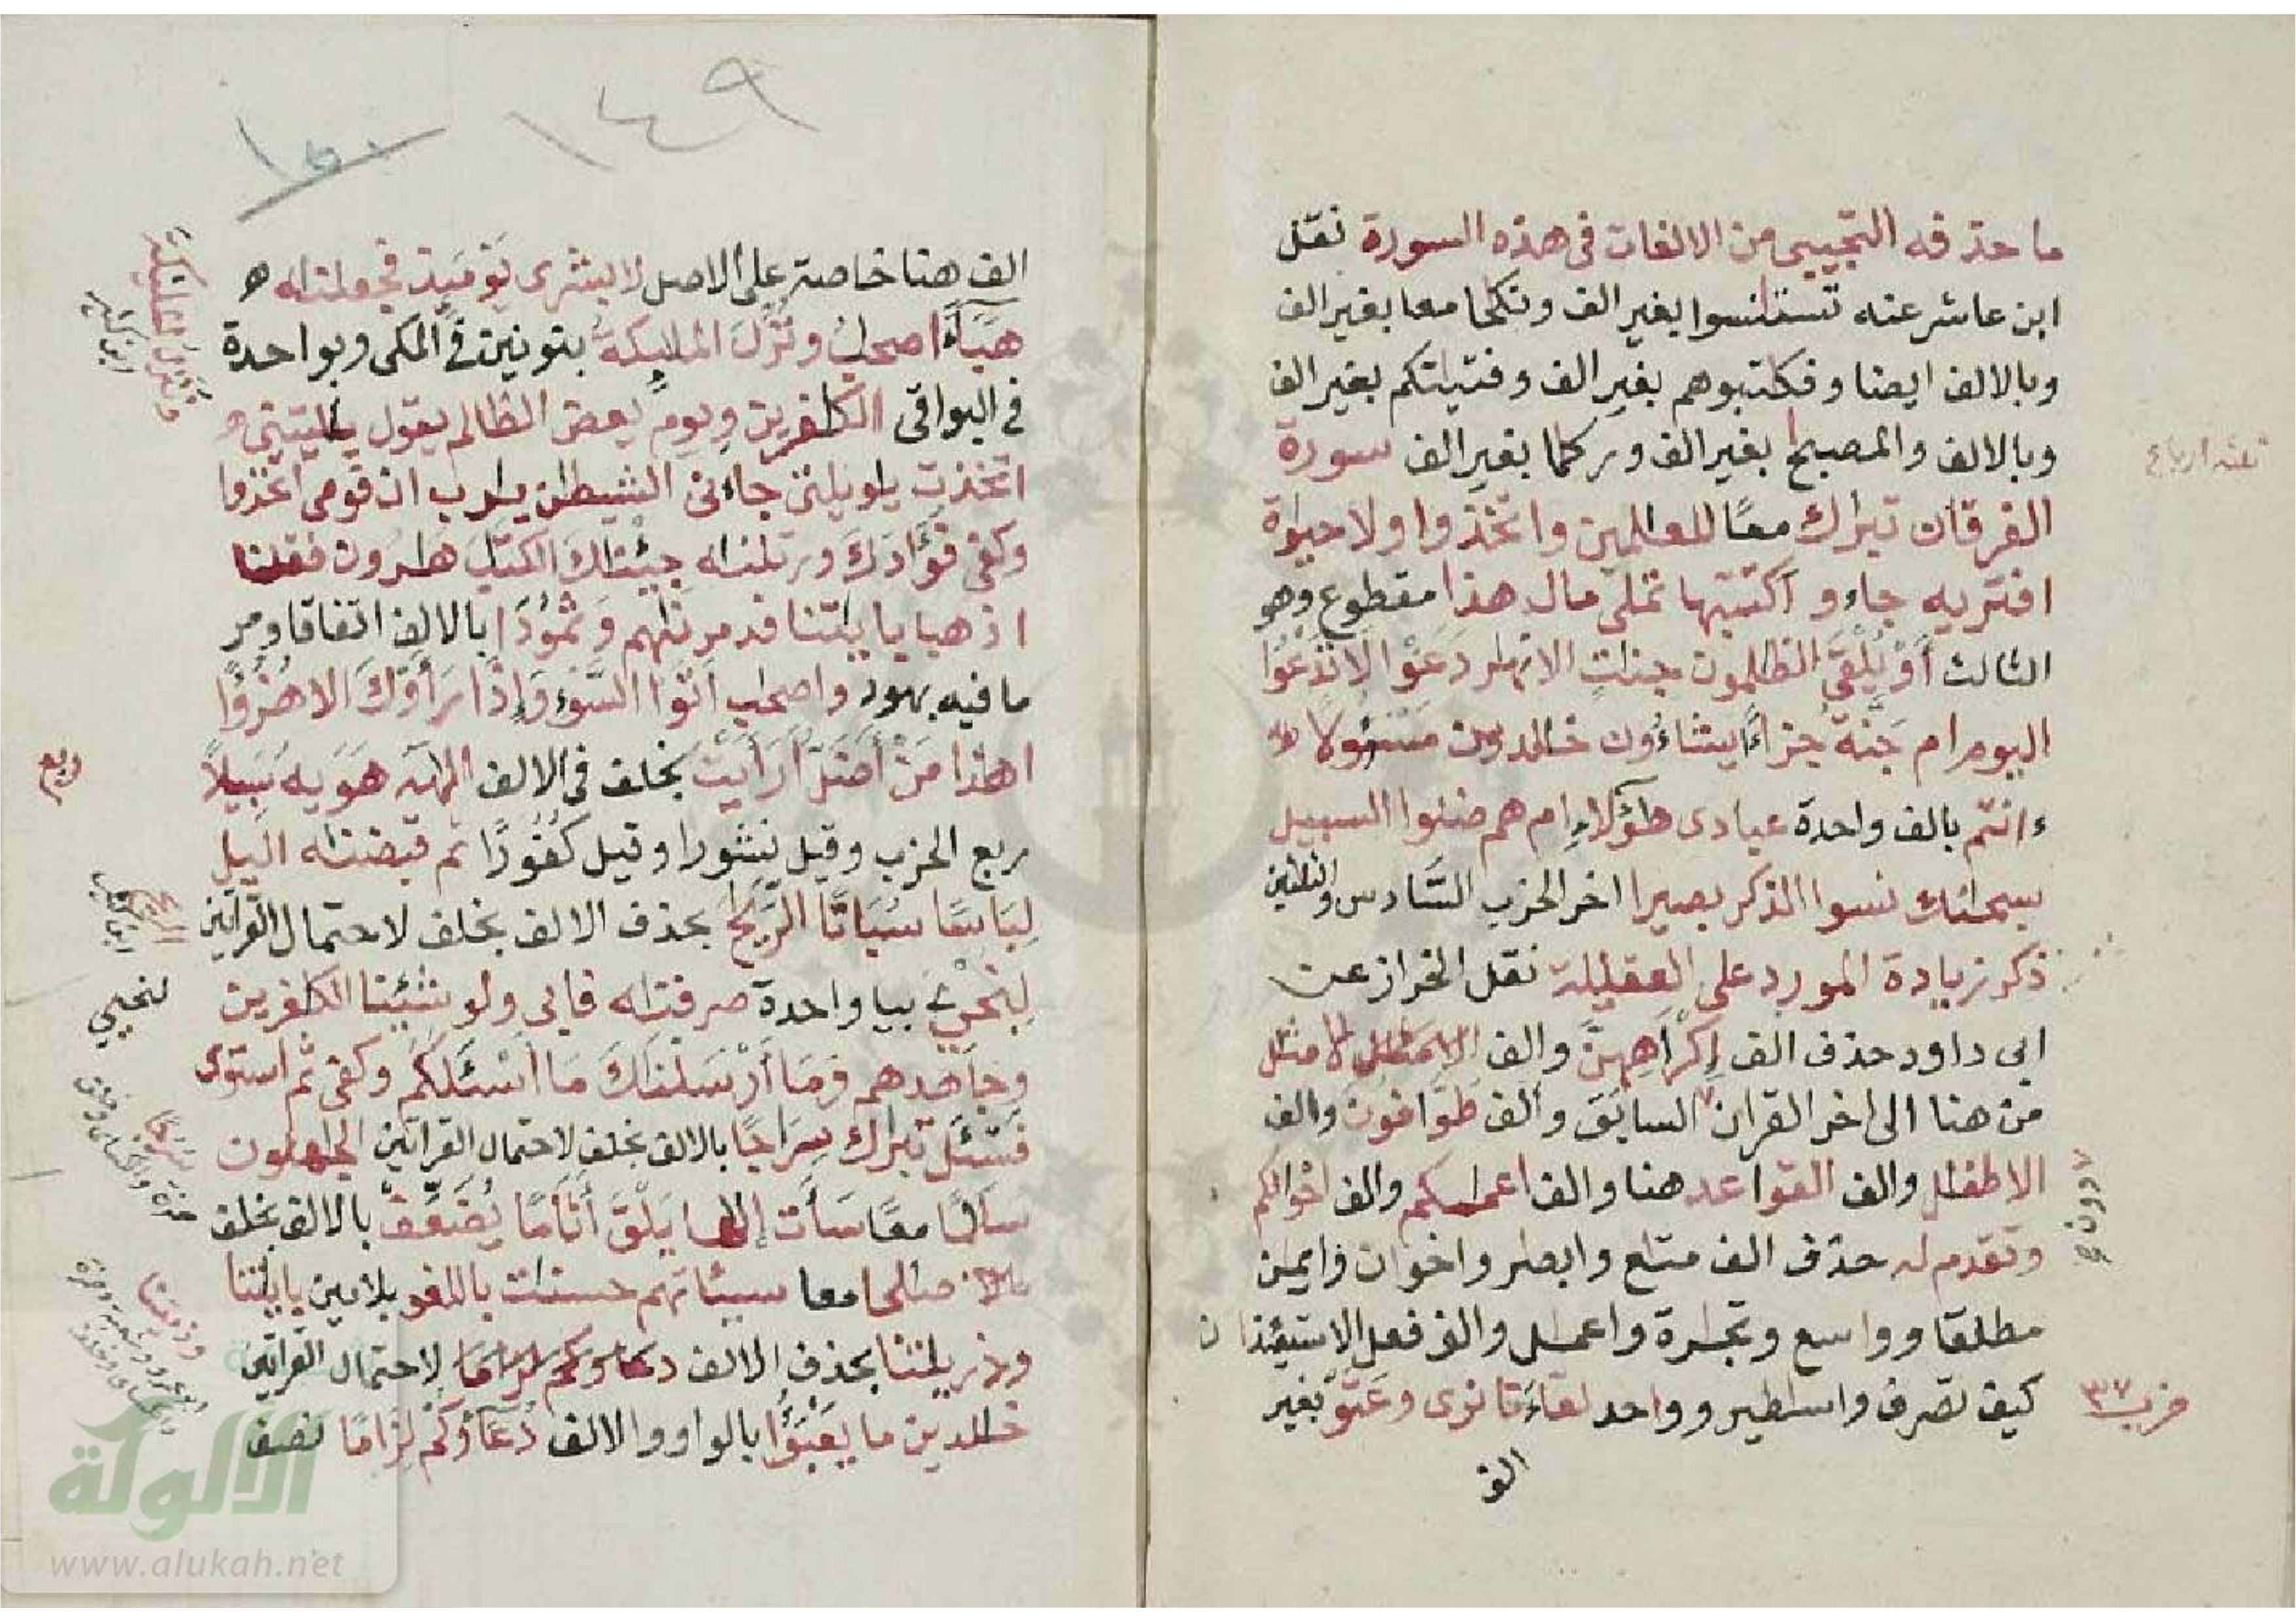 ما حذفه التجيبي من الالفات في هذه السورة نقل
ابن عاشر عنه تستانسوا بغير الف ونكحا معا بغير الف
وبالالف ايضا وفكتبوهم بغير الف وفتيتكم بغير الف
وبالالف والمصبح بغير الف وركما بغير الف سورة
الفرقان تبرك معًا للعلمين واتخذوا ولا حيوة
افتريه جاءو اكتتبها تملى مال هذا مقطوع وهو
الثالث أَوْ يُلْقَى الظلمون جنت الانهر دَعَوْا لَا تَدْعُوا
اليوم ام جَنَّةُ جزاءً يشاءون خلدين مسئولا
ءانتم بالف واحدة عبادى هؤلاء ام هم ضلوا السبيل
سبحنك نسوا الذكر بصيرا اخر الحزب السَّادس والثلثين
ذكر زيادة المورد على العقيلة نقل الخراز عن
ابى داود حذف الف إِكْرَاهِهِنَّ والف الامثل لا مثل
من هنا الى اخر القران السابق وألف طَوَّافُونَ والف
الاطفل والف القواعد هنا والف اعملكم والف اخوالكم
وتقدم له حذف الف متع وابصر واخوان وايمن
مطلقا وواسع وتجرة واعمل والف فعل الاستيئذان
كيف تصرف واسطير وواحد لقاءَنا نرى وعَتَوْ بغير
الف
حزب ٣٧
١٤٩
الف هنا خاصة على الاصل لا بشرى يَوْمَئِذٍ فجعلنه
هَبَآءً اصحب ونُزِّلَ الملئكة بنونين في المكى وبواحدة
في البواقى الكفرين ويوم يعض الظالم يقول يليتنى
اتخذت يويلتى جاءنى الشيطن يرب ان قومى اتخذوا
وكفى فُؤَادَكَ ورتلنه جِئْنكَ الكتب هرون فقلنا
اذهبا بايتنا فدمرنهم وَثَمُودَا بالالف اتفاقا ومر
ما فيه بهود واصحب أتَوْا السَّوْءِ وَإِذَا رَأَوْكَ الا هُزُؤًا
اهذا مَنْ أَضَلُّ أَرَأَيْتَ بخلف في الالف الهه هَوَيه سَبِيلاً
ربع الحزب وقيل نشورا وقيل كفُورًا ثم قبضنه اليل
لِبَاسًا سُبَاتًا الرِّيَحَ بحذف الالف بخلف لاحتمال القراتين
لِنُحْـِيَ بيا واحدة صرفنه فابى ولو شئنا الكفرين
وجَاهِدهم وَمَا أَرْسَلنكَ مَا أَسْـَٔلُكُمْ وكفى ثم استوى
فَسْـَٔلْ تبرك سِرَاجًا بالالف بخلف لاحتمال القراتين الجهلون
سلما معًا سَأَتْ إلها يَلْقَ أَثَامًا يُضَعَفْ بالالف بخلف
صلحا معا سيئاتهم حسنت باللغو بلامين بايتنا
وذريتنا بحذف الالف لاحتمال القراتين
خلدين ما يَعْبَؤُا بالواو والالف دُعَاؤُكُمْ لِزَامًا نصف
ربع
لنحيى
الألوكة
www.alukah.net